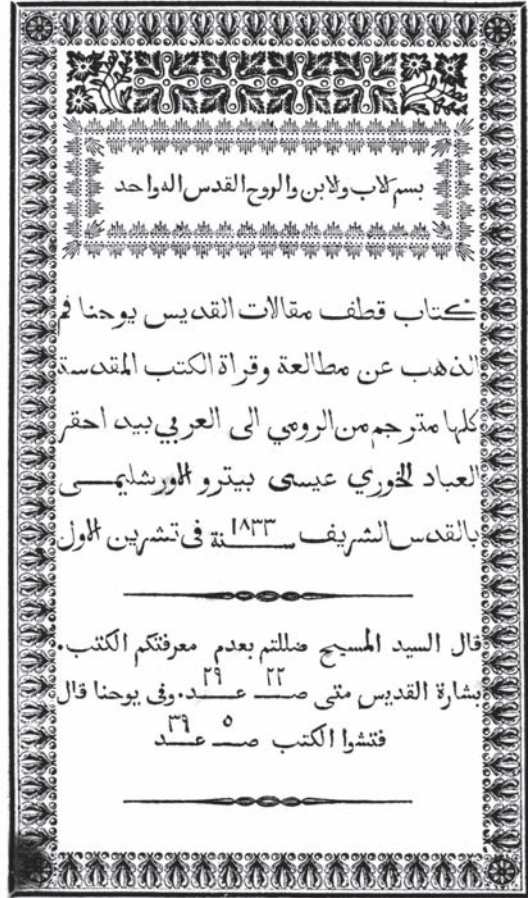 بسم الاب والابن والروح القدس اله واحد
كتاب قطف مقالات القديس يوحنا فم
الذهب عن مطالعة وقراة الكتب المقدسة
كلها مترجم من الرومي الى العربي بيد احقر
العباد الخوري عيسى بيترو الاورشليمى
بالقدس الشريف سنة ١٨٣٣ فى تشرين الاول
قال السيد المسيح ضللتم بعدم معرفتكم الكتب.
بشارة القديس متى صـ ٢٢ عـد ٢٩. وفى يوحنا قال
فتشوا الكتب صـ ٥ عـد ٣٩